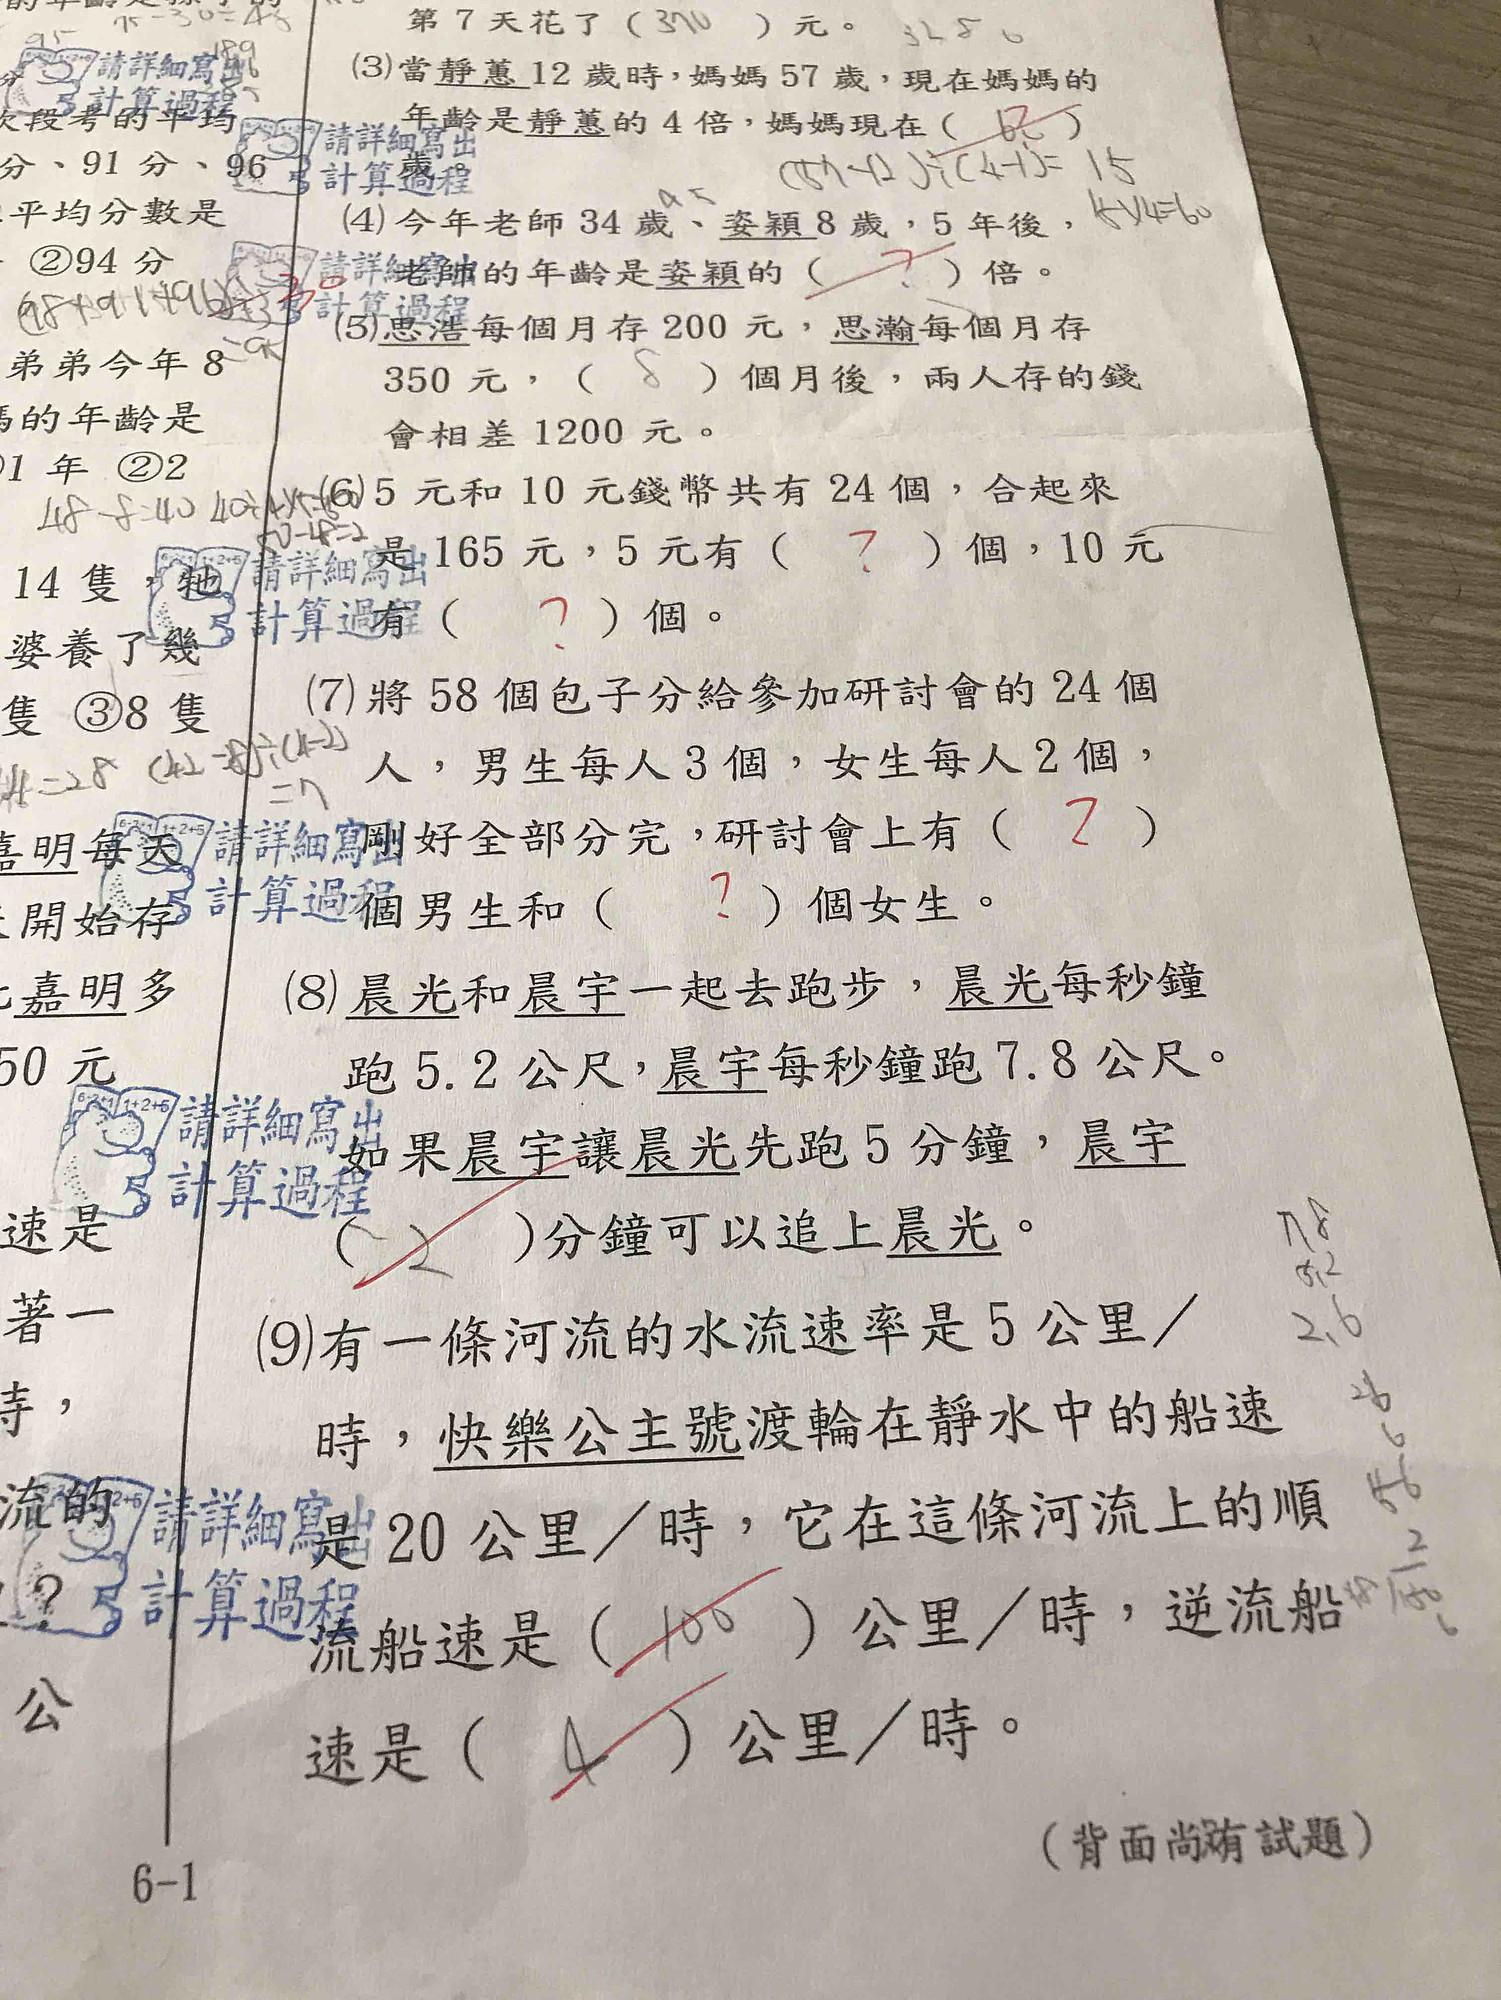 75-30=45
請詳細寫出
計算過程
次段考的平均
分、91分、96
平均分數是
②94分
(98+91+96)÷3
=95
弟弟今年8
媽的年齡是
①1年 ②2
48-8=40
50-48=2
14隻，牠
婆養了幾
隻 ③8隻
=28 (42-8)÷(4-2)
=7
請詳細寫出
計算過程
嘉明每天
開始存
嘉明多
50元
請詳細寫出
計算過程
速是
著一
時，
流的
請詳細寫出
計算過程
？
公
6-1
第7天花了（370）元。
⑶當靜蕙12歲時，媽媽57歲，現在媽媽的
年齡是靜蕙的4倍，媽媽現在（60）
歲。
請詳細寫出
計算過程
(57-12)÷(4-1)=15
15×4=60
⑷今年老師34歲、姿穎8歲，5年後，
老師的年齡是姿穎的（？）倍。
請詳細寫出
計算過程
⑸思浩每個月存200元，思瀚每個月存
350元，（8）個月後，兩人存的錢
會相差1200元。
⑹5元和10元錢幣共有24個，合起來
是165元，5元有（？）個，10元
有（？）個。
請詳細寫出
計算過程
⑺將58個包子分給參加研討會的24個
人，男生每人3個，女生每人2個，
剛好全部分完，研討會上有（？）
個男生和（？）個女生。
⑻晨光和晨宇一起去跑步，晨光每秒鐘
跑5.2公尺，晨宇每秒鐘跑7.8公尺。
如果晨宇讓晨光先跑5分鐘，晨宇
（2）分鐘可以追上晨光。
7.8
5.2
2.6
26
6
156
⑼有一條河流的水流速率是5公里／
時，快樂公主號渡輪在靜水中的船速
是20公里／時，它在這條河流上的順
流船速是（100）公里／時，逆流船
速是（4）公里／時。
（背面尚有試題）